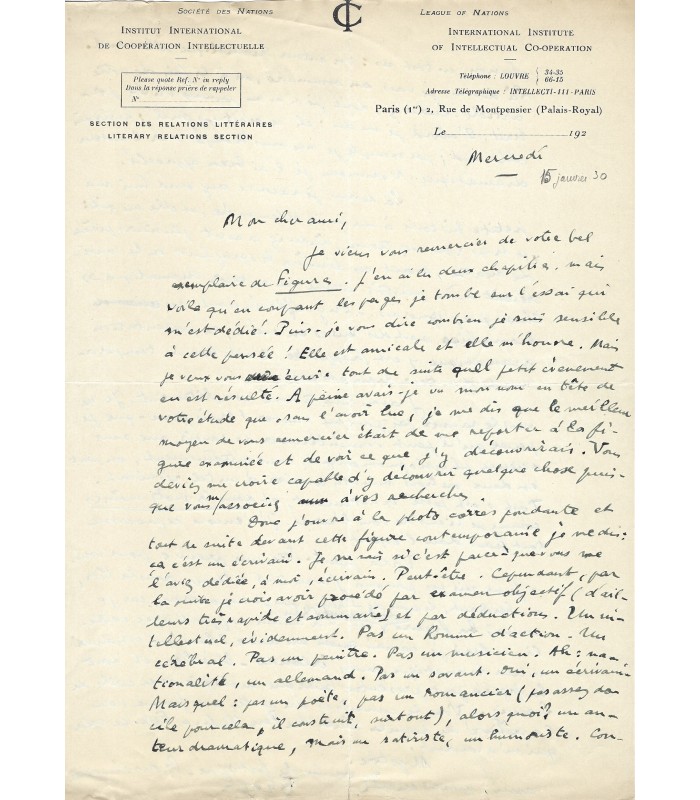 Société des Nations
Institut International
de Coopération Intellectuelle
Please quote Ref. Nº in reply
Dans la réponse prière de rappeler
Nº
SECTION DES RELATIONS LITTÉRAIRES
LITERARY RELATIONS SECTION
IC
League of Nations
International Institute
of Intellectual Co-operation
Téléphone : LOUVRE { 34-35
66-15
Adresse Télégraphique : INTELLECTI-111-PARIS
Paris (1er) 2, Rue de Montpensier (Palais-Royal)
Le 192
Mercredi
15 janvier 30
Mon cher ami,
Je viens vous remercier de votre bel
exemplaire de Figures. J'en ai lu deux chapitres, mais
voilà qu'en coupant les pages je tombe sur l'essai qui
m'est dédié! Puis-je vous dire combien je suis sensible
à cette pensée! Elle est amicale et elle m'honore. Mais
je veux vous écrire tout de suite quel petit évènement
en est résulté. A peine avais-je vu mon nom en tête de
votre étude que, sans l'avoir lue, je me dis que le meilleur
moyen de vous remercier était de me reporter à la fi-
gure examinée et de voir ce que j'y découvrirais. Vous
deviez me croire capable d'y découvrir quelque chose puis-
que vous m'associez à vos recherches.
Donc j'ouvre à la photo correspondante et
tout de suite devant cette figure contemporaine je me dis:
ça c'est un écrivain. Je ne sais si c'est parce que vous me
l'avez dédiée, à moi, écrivain. Peut-être. Cependant, par
la suite je crois avoir procédé par examen objectif (d'ail-
leurs très rapide et sommaire) et par déductions. Un in-
tellectuel, évidemment. Pas un homme d'action. Un
cérébral. Pas un peintre. Pas un musicien. Ah: na-
tionalité, un allemand. Pas un savant. Oui, un écrivain.
Mais quel: pas un poète, pas un romancier (pas assez do-
cile pour cela, il construit, surtout), alors quoi? un au-
teur dramatique, mais un satiriste, un humoriste. Con-